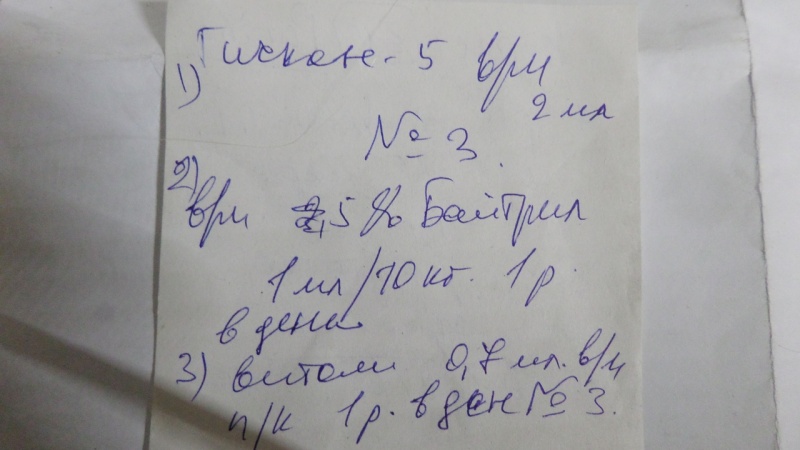 1) Гискан-5 в/м
2 мл
№ 3.
2)
в/м 2,5% Байтрил
1 мл/10 кг. 1 р.
в день
3) витам 0,7 мл. в/м
п/к 1 р. в ден № 3.